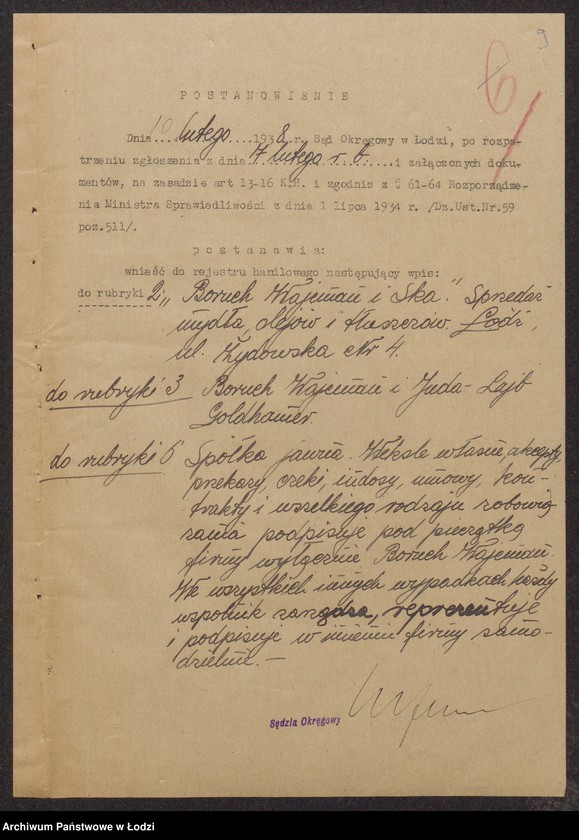 9
6
POSTANOWIENIE
Dnia 10 lutego 1938 r. Sąd Okręgowy w Łodzi, po rozpa-
trzeniu zgłoszenia z dnia 7 lutego r. b. i załączonych doku-
mentów, na zasadzie art 13-16 K.H. i zgodnie z § 61-64 Rozporządze-
nia Ministra Sprawiedliwości z dnia 1 lipca 1934 r. /Dz.Ust.Nr.59
poz.511/.
postanawia:
wnieść do rejestru handlowego następujący wpis:
do rubryki 2: „Boruch Wajcman i Ska." Sprzedaż
mydła, olejów i tłuszczów. Łódź,
ul. Żydowska Nr 4.
do rubryki 3 Boruch Wajcman i Juda-Lajb
Goldhamer.
do rubryki 6 Spółka jawna. Weksle własne, akcepty,
przekazy, czeki, indosy, umowy, kon-
trakty i wszelkiego rodzaju zobowią-
zania podpisuje pod pieczątką
firmy wyłącznie Boruch Wajcman.
We wszystkich innych wypadkach każdy
wspólnik zarządza, reprezentuje
i podpisuje w imieniu firmy samo-
dzielnie.—
Sędzia Okręgowy
Archiwum Państwowe w Łodzi